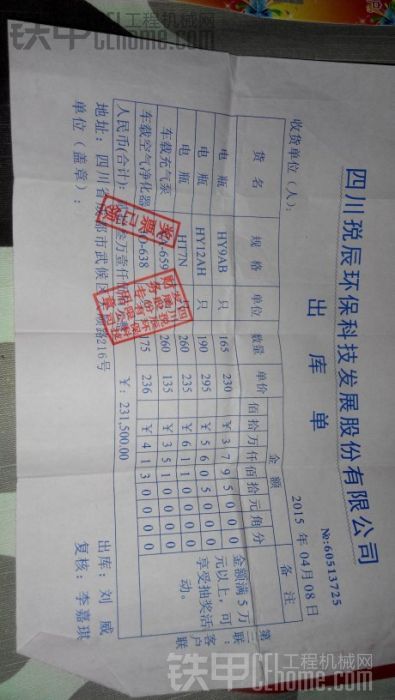 铁甲 工程机械网
cehome.com
四川捝辰环保科技发展股份有限公司
出库单
№:60513725
收货单位(人):
2015 年 04月 08 日
货名 规格 单位 数量 单价 金额 备注
佰 十 万 仟 佰 拾 元 角 分
电瓶 HY9AB 只 165 230 ¥ 3 7 9 5 0 0 0
电瓶 HY12AH 只 190 295 ¥ 5 6 0 5 0 0 0
电瓶 H17N 260 235 ¥ 6 1 1 0 0 0 0
车载充气泵 -659 260 135 ¥ 3 5 1 0 0 0 0
车载空气净化器 O-638 175 236 ¥ 4 1 3 0 0 0 0
金额满 5 万元以上,可享受抽奖活动。
第二联:客户联
人民币(合计): 叁万壹仟 ¥: 231,500.00
地址:四川省成都市武侯区 216号
单位(盖章):
出库: 刘 威
复核: 李嘉琪
奖票已领
铁甲 工程机械网
cehome.com